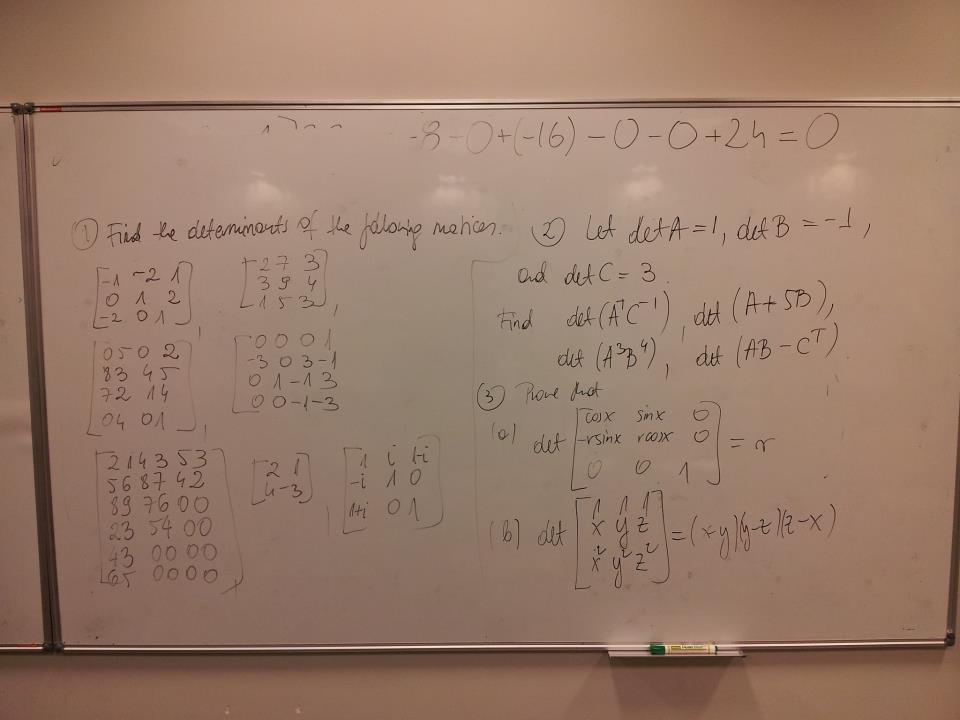 -8-0+(-16)-0-0+24=0
① Find the determinants of the following matrices.
[-1 -2 1
0 1 2
-2 0 1],
[-2 7 3
3 9 4
1 5 3],
[0 5 0 2
8 3 4 5
7 2 1 4
0 4 0 1],
[0 0 0 1
-3 0 3 -1
0 1 -1 3
0 0 -1 -3]
[2 1 4 3 5 3
5 6 8 7 4 2
8 9 7 6 0 0
2 3 5 4 0 0
4 3 0 0 0 0
6 5 0 0 0 0],
[2 1
4 -3],
[1 i 1-i
-i 1 0
1+i 0 1]
② Let det A = 1, det B = -1,
and det C = 3.
Find det(AᵀC⁻¹), det(A+5B),
det(A³B⁴), det(AB-Cᵀ).
③ Prove that
(a) det [cosx sinx 0
-rsinx rcosx 0
0 0 1] = r
(b) det [1 1 1
x y z
x² y² z²] = (x-y)(y-z)(z-x)